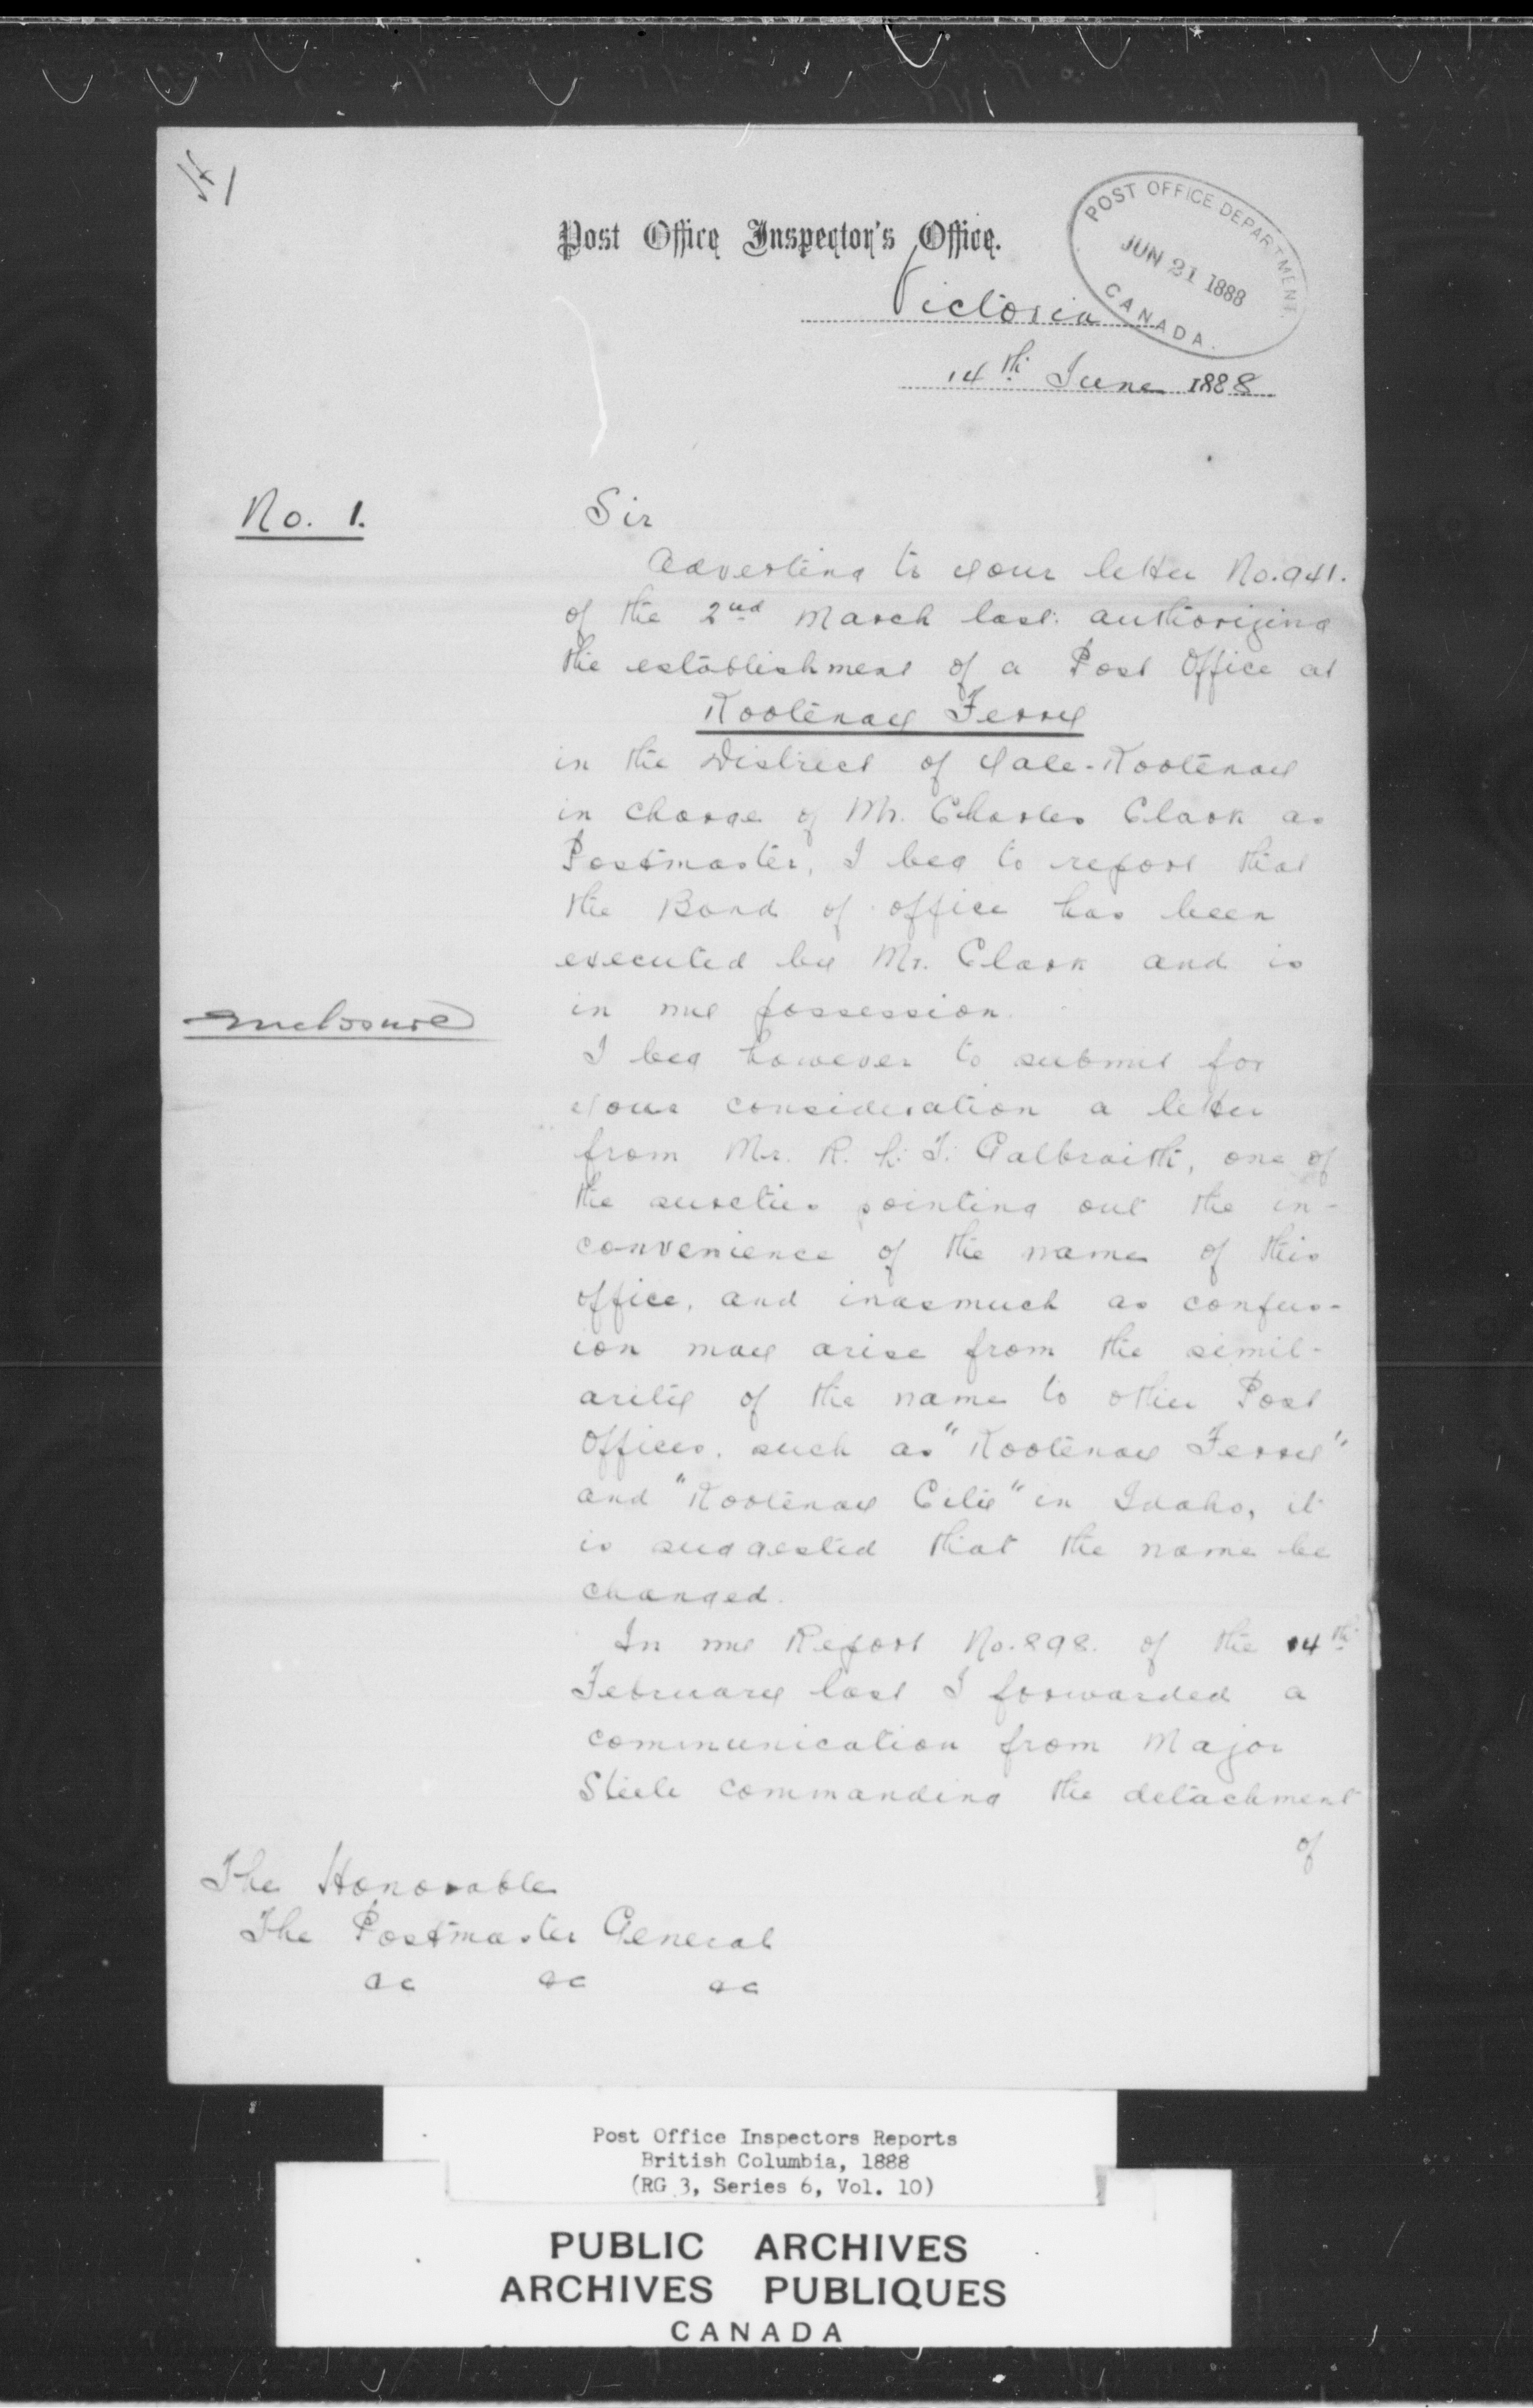 Post Office Inspector's Office.
POST OFFICE DEPARTMENT,
JUN 21 1888
CANADA.
Victoria
14th June 1888
No. 1.
Sir
Adverting to your letter No. 941.
of the 2nd March last authorizing
the establishment of a Post Office at
Kootenay Ferry
in the District of Yale-Kootenay
in charge of Mr. Charles Clark as
Postmaster, I beg to report that
the Bond of office has been
executed by Mr. Clark and is
in my possession.
Enclosure
I beg however to submit for
your consideration a letter
from Mr. R. L. T. Galbraith, one of
the sureties pointing out the in-
convenience of the name of this
office, and inasmuch as confus-
ion may arise from the simil-
arity of the name to other Post
Offices, such as "Kootenay Ferry"
and "Kootenay City" in Idaho, it
is suggested that the name be
changed.
In my Report No. 898. of the 14th
February last I forwarded a
communication from Major
Steele commanding the detachment
of
The Honorable
The Postmaster General
&c &c &c
Post Office Inspectors Reports
British Columbia, 1888
(RG 3, Series 6, Vol. 10)
PUBLIC ARCHIVES
ARCHIVES PUBLIQUES
CANADA